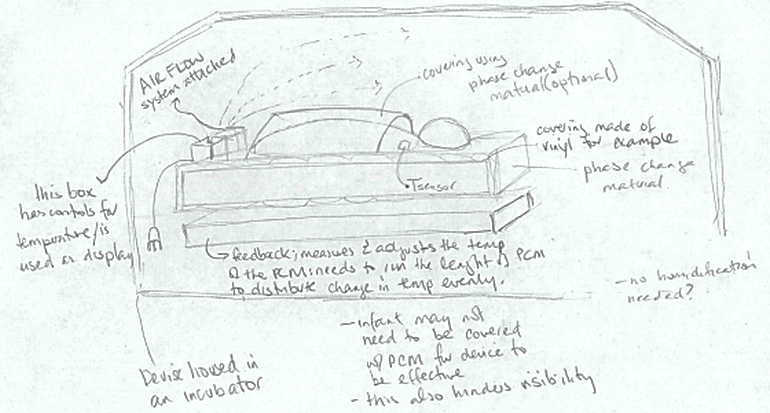 AIR FLOW
system attached
covering using
phase change
matual (optional)
covering made of
vinyl for example
phase change
matirial
Tsensor
this box
has controls for
temperature/is
used as display
feedback; measures & adjusts the temp
of the PCM: needs to run the lenght of PCM
to distribute change in temp evenly.
- no humidification
needed?
- infant may not
need to be covered
w/ PCM for device to
be effective
- this also hinders visibility
Device housed in
an incubator